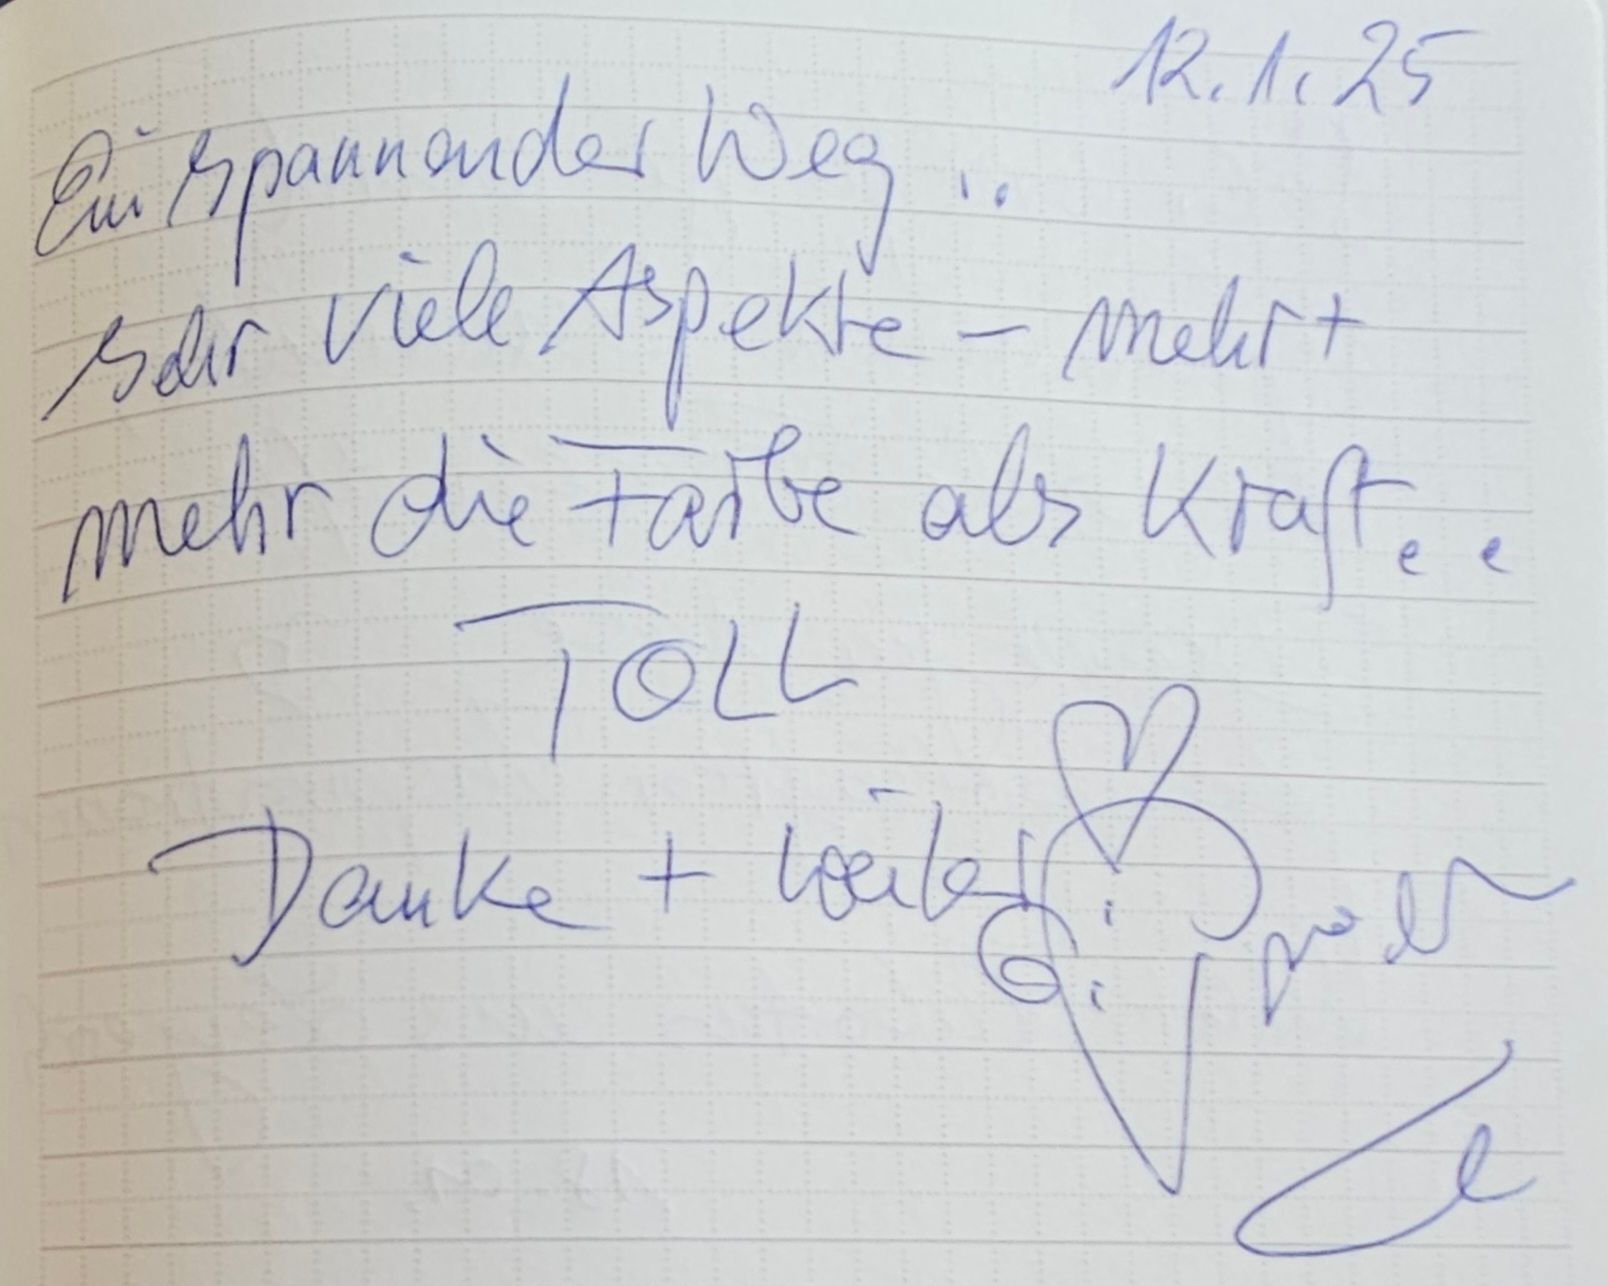 12.1.25
Ein spannender Weg ..
Sehr viele Aspekte – mehr +
mehr die Farbe als Kraft..
TOLL
Danke + weiter